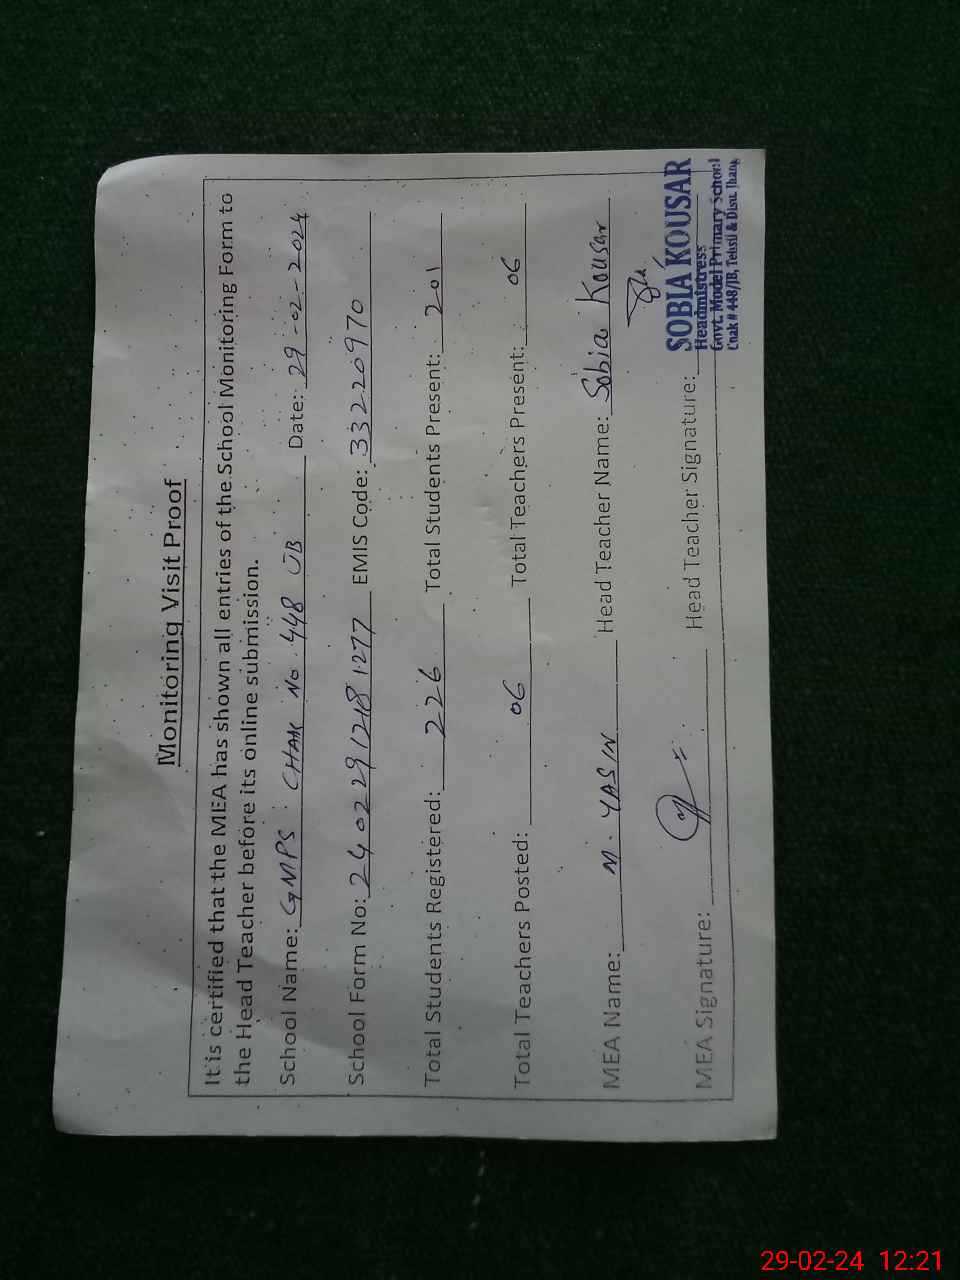 Monitoring Visit Proof
It is certified that the MEA has shown all entries of the School Monitoring Form to
the Head Teacher before its online submission.
School Name: GMPS CHAK No. 448 JB Date: 29-02-2024
School Form No: 24022912181277 EMIS Code: 33220970
Total Students Registered: 226 Total Students Present: 201
Total Teachers Posted: 06 Total Teachers Present: 06
MEA Name: M. YASIN Head Teacher Name: Sobia Kousar
MEA Signature: Head Teacher Signature:
SOBIA KOUSAR
Headmistress
Govt. Model Primary School
Chak # 448/JB, Tehsil & Distt. Jhang
29-02-24 12:21